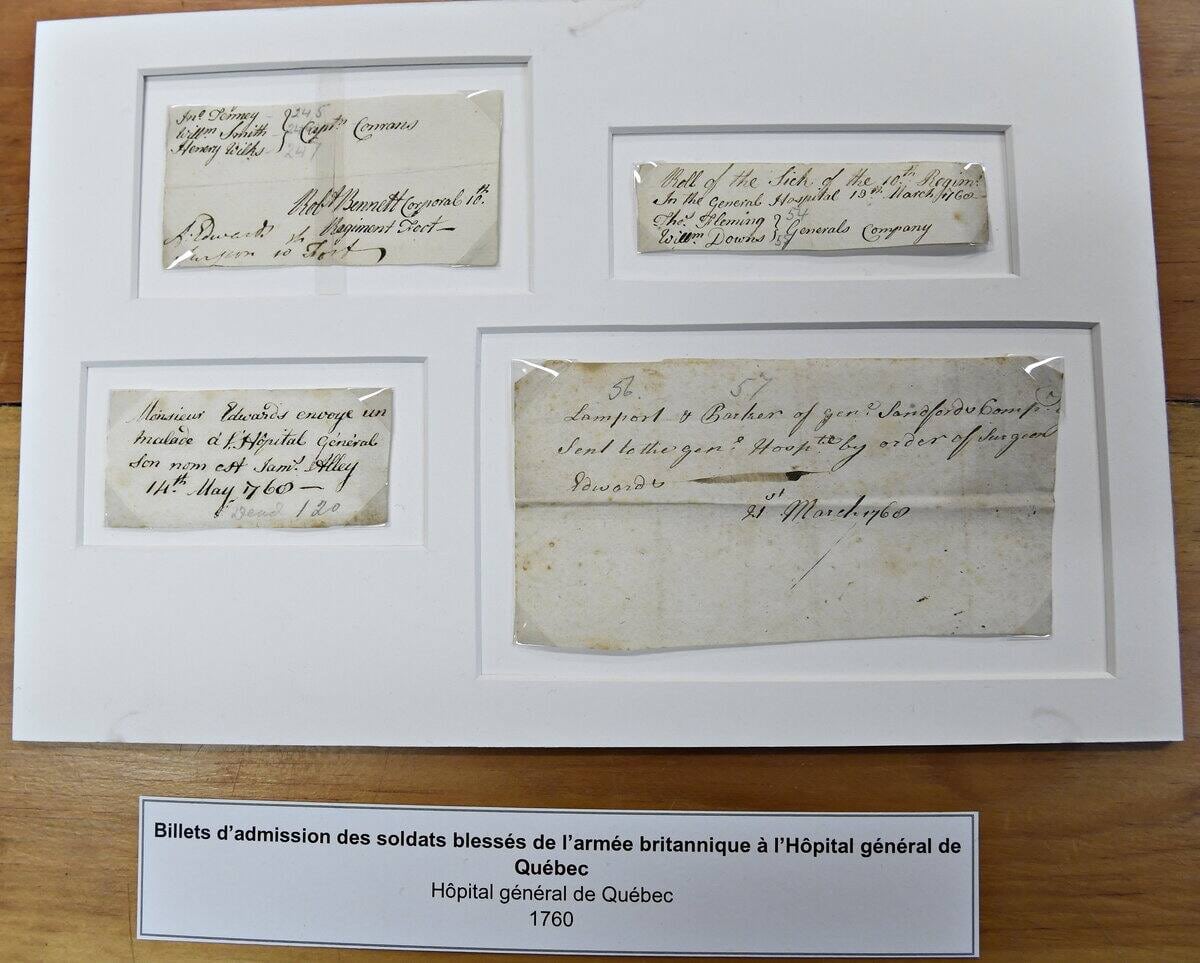 Jnº Tenney - 245
Willm Smith - } Captn Conrans
Henery Wilks - 247
Robt Bennett Corporal 10th
Regiment Foot —
A: Edwards
Surgeon 10th Foot
Roll of the Sick of the 10th Regimt
In the General Hospital 19th March 1768 —
Thos Fleming } 54
Willm Downs } 55 Generals Company
Monsieur Edwards envoye un
malade à l'Hôpital Général
son nom est Jams Alley
14th May 1768 —
Dead 120
56. 57
Lamport & Barker of genl Sandfords Compy
Sent to the genl Hosptl by order of Surgeon
Edwards
21st March 1768
Billets d'admission des soldats blessés de l'armée britannique à l'Hôpital général de
Québec
Hôpital général de Québec
1760